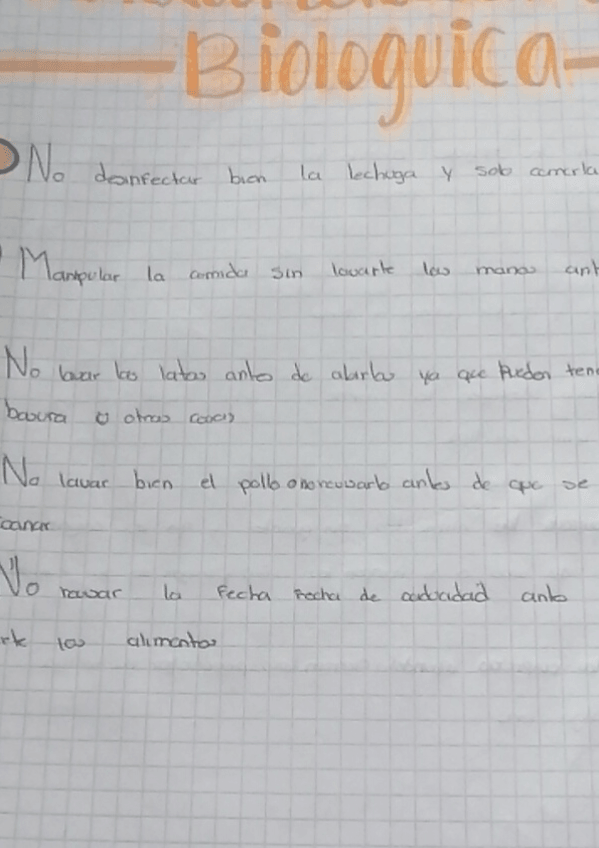 Biologuica
No desinfectar bien la lechuga y solo comerla
Manipular la comida sin lavarte las manos ant
No lavar las latas antes de abirlas ya que pueden ten
basura o otras cosas
No lavar bien el pollo antes de que se
No revisar la Fecha Fecha de caducidad ants
los alimentos